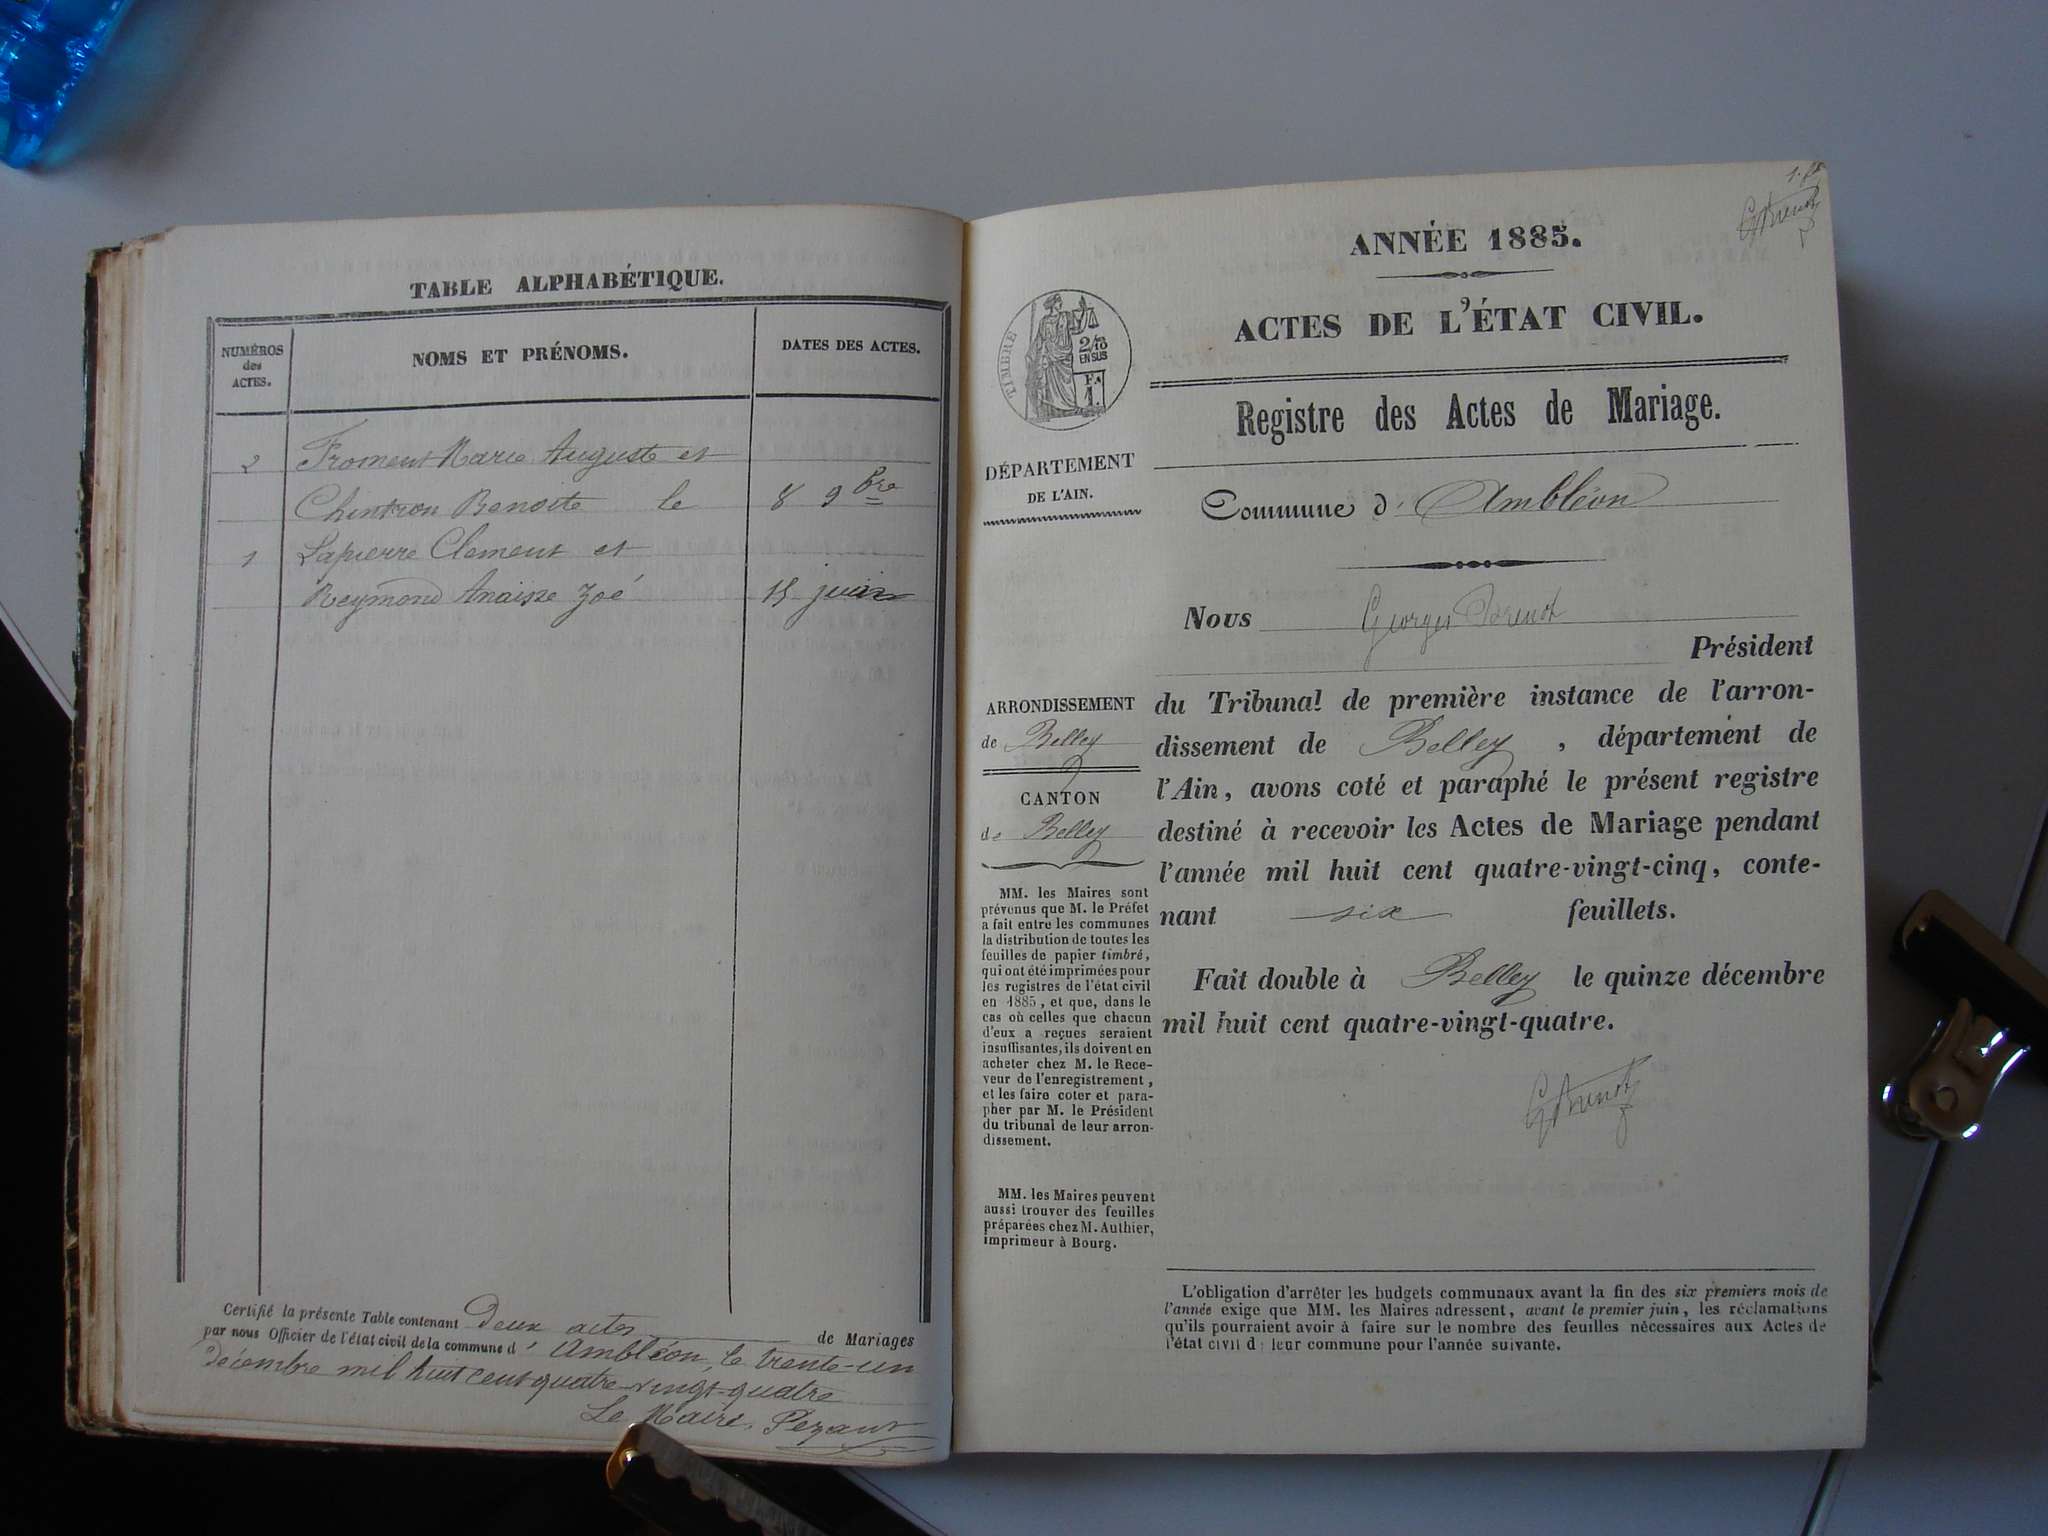 TABLE ALPHABÉTIQUE.
NUMÉROS
des
ACTES.
NOMS ET PRÉNOMS.
DATES DES ACTES.
2 Froment Marie Auguste et
Chintron Benoite le 8 9bre
1 Lapierre Clement et
Reymond Anaisse Zoé 15 juin
Certifié la présente Table contenant Deux actes de Mariages
par nous Officier de l'état civil de la commune d' Ambléon, le trente-un
décembre mil huit cent quatre-vingt-quatre
Le Maire, Pezant
ANNÉE 1885.
ACTES DE L'ÉTAT CIVIL.
TIMBRE
2/10
EN SUS
Registre des Actes de Mariage.
DÉPARTEMENT
DE L'AIN.
Commune d' Ambléon
Nous Georges Brenot
Président
du Tribunal de première instance de l'arron-
dissement de Belley, département de
l'Ain, avons coté et paraphé le présent registre
destiné à recevoir les Actes de Mariage pendant
l'année mil huit cent quatre-vingt-cinq, conte-
nant six feuillets.
Fait double à Belley le quinze décembre
mil huit cent quatre-vingt-quatre.
ARRONDISSEMENT
de Belley
CANTON
de Belley
MM. les Maires sont
prévenus que M. le Préfet
a fait entre les communes
la distribution de toutes les
feuilles de papier timbré,
qui ont été imprimées pour
les registres de l'état civil
en 1885, et que, dans le
cas où celles que chacun
d'eux a reçues seraient
insuffisantes, ils doivent en
acheter chez M. le Rece-
veur de l'enregistrement,
et les faire coter et para-
pher par M. le Président
du tribunal de leur arron-
dissement.
MM. les Maires peuvent
aussi trouver des feuilles
préparées chez M. Authier,
imprimeur à Bourg.
L'obligation d'arrêter les budgets communaux avant la fin des six premiers mois de
l'année exige que MM. les Maires adressent, avant le premier juin, les réclamations
qu'ils pourraient avoir à faire sur le nombre des feuilles nécessaires aux Actes de
l'état civil de leur commune pour l'année suivante.